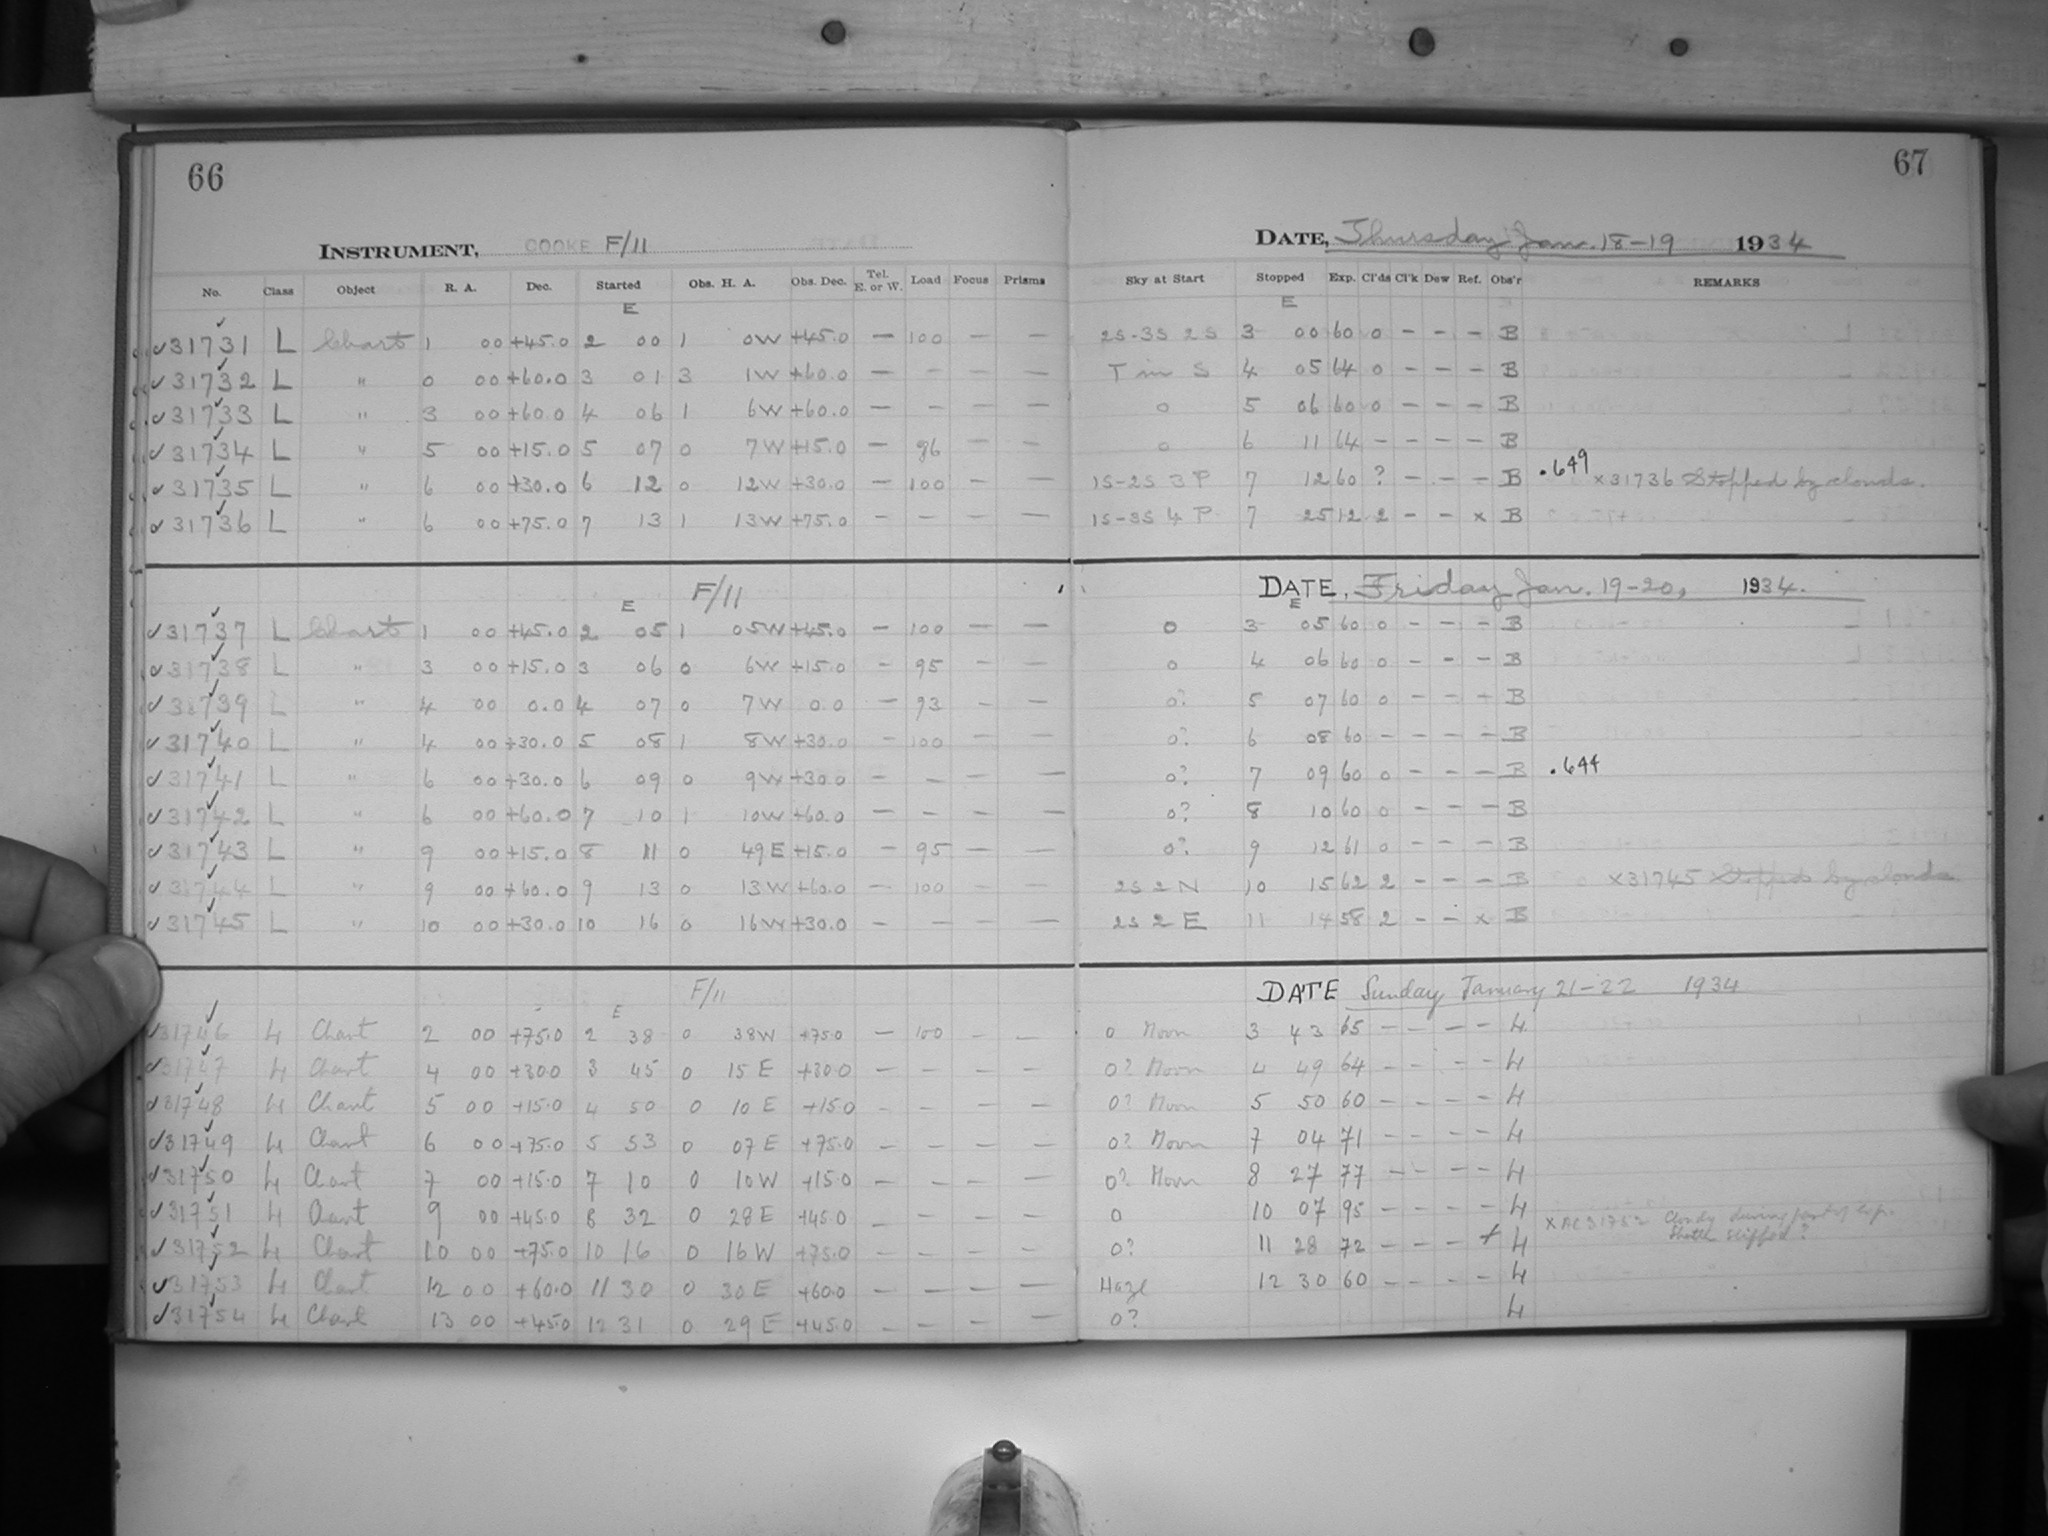 66
67
INSTRUMENT, COOKE F/11
DATE, Thursday Jan. 18-19 1934
No. Class Object R. A. Dec. Started Obs. H. A. Obs. Dec. Tel. E. or W. Load Focus Prisms Sky at Start Stopped Exp. Cl'ds Cl'k Dew Ref. Obs'r REMARKS
E E
✓31731 L Chart 1 00 +45.0 2 00 1 0W +45.0 — 100 — — 2S-3S 2S 3 00 60 0 - - - B
✓31732 L " 0 00 +60.0 3 01 3 1W +60.0 — - — — T in S 4 05 64 0 - - - B
✓31733 L " 3 00 +60.0 4 06 1 6W +60.0 — - — — 0 5 06 60 0 - - - B
✓31734 L " 5 00 +15.0 5 07 0 7W +15.0 — 96 — — 0 6 11 64 - - - - B
✓31735 L " 6 00 +30.0 6 12 0 12W +30.0 — 100 — — 1S-2S 3P 7 12 60 ? - - - B .649 x31736 Stopped by clouds.
✓31736 L " 6 00 +75.0 7 13 1 13W +75.0 — — — — 1S-3S 4P 7 25 12 2 - - x B
F/11 DATE, Friday Jan. 19-20, 1934.
E E
✓31737 L Chart 1 00 +45.0 2 05 1 05W +45.0 — 100 — — 0 3 05 60 0 - - - B
✓31738 L " 3 00 +15.0 3 06 0 6W +15.0 - 95 - — 0 4 06 60 0 - - - B
✓31739 L " 4 00 0.0 4 07 0 7W 0.0 — 93 - — 0? 5 07 60 0 - - - B
✓31740 L " 4 00 +30.0 5 08 1 8W +30.0 - 100 — — 0? 6 08 60 - - - - B
✓31741 L " 6 00 +30.0 6 09 0 9W +30.0 - - — — 0? 7 09 60 0 - - - B .644
✓31742 L " 6 00 +60.0 7 10 1 10W +60.0 — - — — 0? 8 10 60 0 - - - B
✓31743 L " 9 00 +15.0 8 11 0 49E +15.0 - 95 — — 0? 9 12 61 0 - - - B
✓31744 L " 9 00 +60.0 9 13 0 13W +60.0 — 100 — — 2S 2N 10 15 62 2 - - - B x31745 Stopped by clouds
✓31745 L " 10 00 +30.0 10 16 0 16W +30.0 - — — — 2S 2E 11 14 58 2 - - x B
F/11 DATE Sunday January 21-22 1934
E
✓31746 H Chart 2 00 +75.0 2 38 0 38W +75.0 — 100 - — 0 Moon 3 43 65 - - - - H
✓31747 H Chart 4 00 +30.0 3 45 0 15E +30.0 - - - — 0? Moon 4 49 64 - - - - H
✓31748 H Chart 5 00 +15.0 4 50 0 10E +15.0 - - — — 0? Moon 5 50 60 - - - - H
✓31749 H Chart 6 00 +75.0 5 53 0 07E +75.0 - - - — 0? Moon 7 04 71 - - - - H
✓31750 H Chart 7 00 +15.0 7 10 0 10W +15.0 - - — — 0? Moon 8 27 77 - - - - H
✓31751 H Chart 9 00 +45.0 8 32 0 28E +45.0 - - — — 0 10 07 95 - - - - H
xAC31752 Cloudy during part of exp.
✓31752 H Chart 10 00 +75.0 10 16 0 16W +75.0 - - - — 0? 11 28 72 - - - + H Shutter slipped?
✓31753 H Chart 12 00 +60.0 11 30 0 30E +60.0 - - - — Haze 12 30 60 - - - - H
✓31754 H Chart 13 00 +45.0 12 31 0 29E +45.0 - - - — 0? H